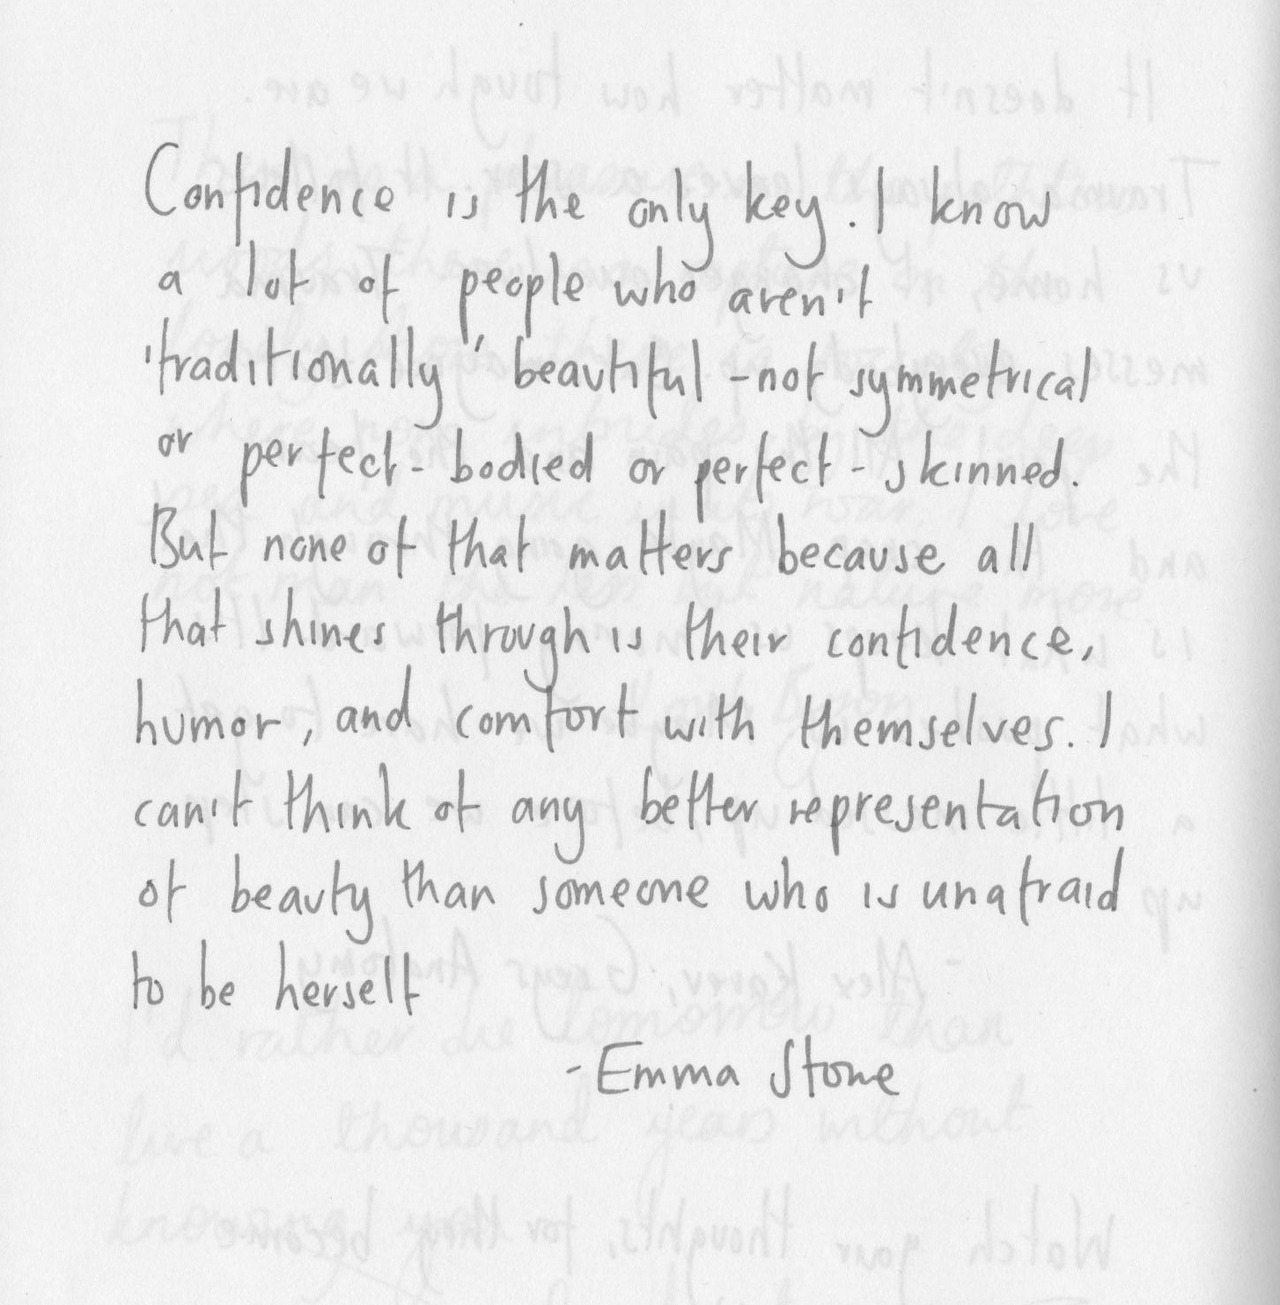 Confidence is the only key. I know
a lot of people who aren't
'traditionally' beautiful - not symmetrical
or perfect-bodied or perfect-skinned.
But none of that matters because all
that shines through is their confidence,
humor, and comfort with themselves. I
can't think of any better representation
of beauty than someone who is unafraid
to be herself
- Emma Stone